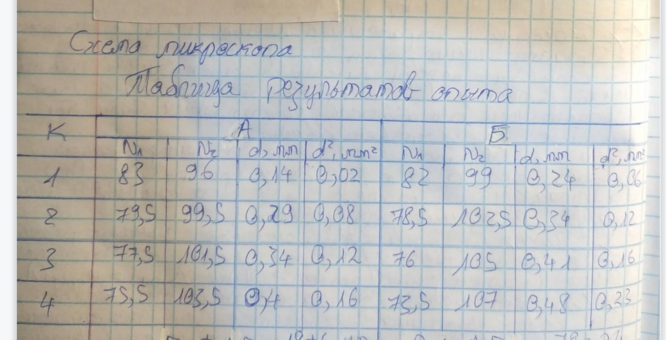 Схема микроскопа
Таблица результатов опыта
К А Б
N₁ N₂ d, mm d², mm² N₁ N₂ d, mm d², mm²
1 83 96 0,14 0,02 82 99 0,24 0,06
2 79,5 99,5 0,29 0,08 78,5 102,5 0,34 0,12
3 77,5 101,5 0,34 0,12 76 105 0,41 0,16
4 75,5 103,5 0,4 0,16 73,5 107 0,48 0,23